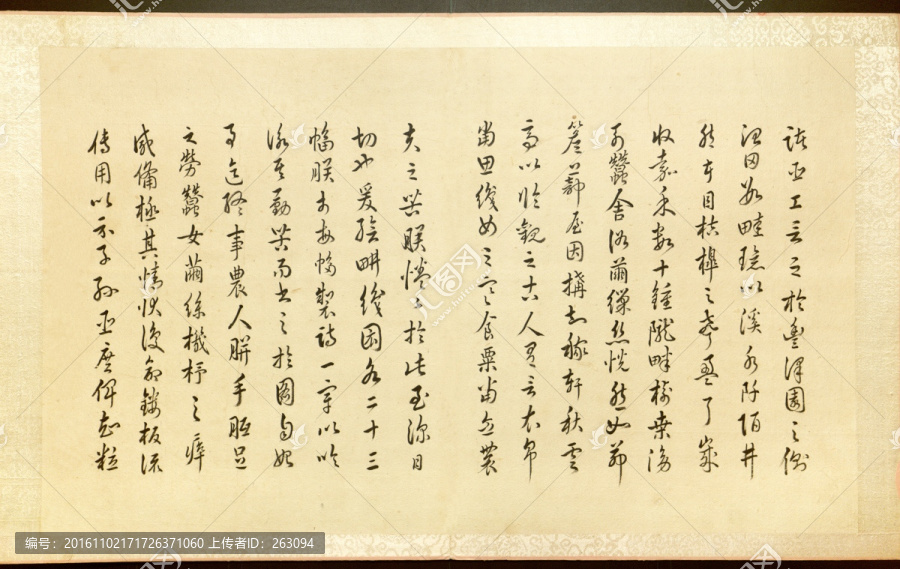 諸臣工言之於豐澤園之側
治田數畦環以溪水阡陌井
然在目桔槔之聲盈耳歲
收嘉禾數十鍾隴畔樹桑傍
列蠶舍浴繭繅絲恍然如茆
簷蔀屋因構知稼軒秋雲
亭以臨觀之古人有言衣帛
當思織女之寒食粟當念農
夫之苦朕惓惓於此至深且
切也爰繪耕織圖各二十三
幅朕於每幅製詩一章以吟
詠其勤苦而書之於圖自始
事迄終事農人胼手胝足
之勞蠶女繭絲機杼之瘁
咸備極其情狀復命鏤板流
傳用以示子孫臣庶俾知粒
编号:20161102171726371060 上传者ID:263094